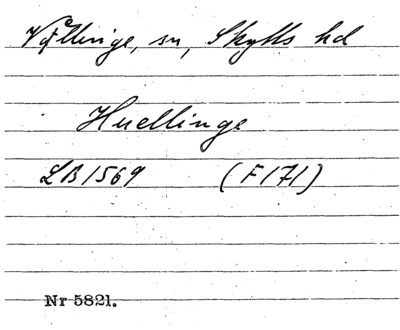 Vällinge, sn, Skytts hd
Huellinge
LB 1569 (F171)
Nr 5821.